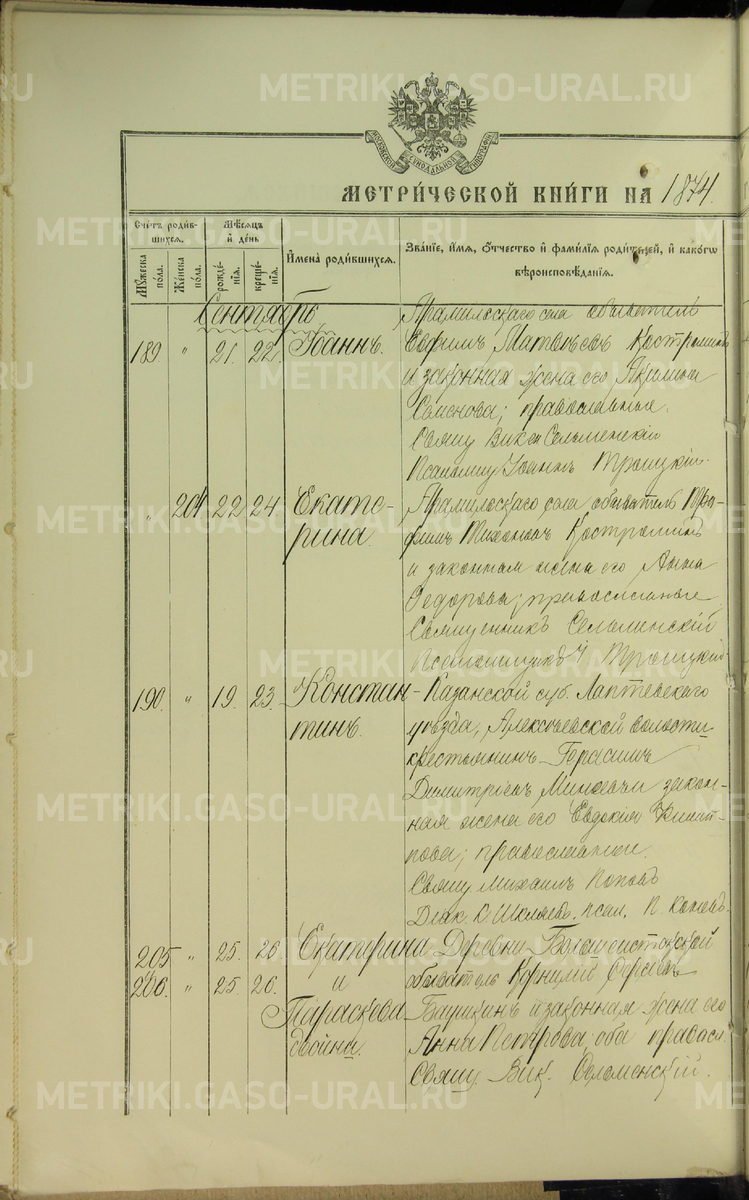 МОСКОВСКОЙ СѴНОДАЛЬНОЙ ТИПОГРАФІИ
МЕТРИ́ЧЕСКОЙ КНИ́ГИ НА 1874.
Сче́тъ роди́в-
шихся.
Му́жеска
по́ла.
Же́нска
по́ла.
Мѣ́сяцъ
и҆ де́нь
рожде́-
нїѧ.
креще́-
нїѧ.
И҆мена̀ роди́вшихся.
Зва́нїе, и҆́мя, ѻ҆́тчество и҆ фами́лїя роди́телей, и҆ како́гѡ
вѣроисповѣ́данїѧ.
Сентябрь
189 " 21. 22. Іоаннъ.
Арамильскаго села обыватель
Ефимъ Матвѣевъ Костроминъ
и законная жена его Акилина
Семенова; православные.
Свящ Вик Сельменскій
Псаломщ Іоаннъ Троицкій.
" 204 22 24 Екате-
рина.
Арамильскаго села обыватель
Тихоновъ Костроминъ
и законная жена его Анна
Федорова; православные
Священникъ Сельменскій
Псаломщикъ І Троицкій
190. " 19. 23. Констан-
тинъ.
Казанской губ. Лаптевскаго
уѣзда, Алексѣевской волости
крестьянинъ Герасимъ
Димитріевъ и закон-
ная жена его Евдокія Филип-
пова; православные.
Свящ Михаилъ Поповъ
Діак. К. Шкляевъ, псал. П.
205 " 25. 26. Екатерина
206. " 25. 26. и
Параскева
двойни.
Деревни
обыватель Корнилій Сергѣевъ
и законная жена его
Анна Петрова, оба правосл.
Свящ. Вик. Сельменскій.
METRIKI.GASO-URAL.RU